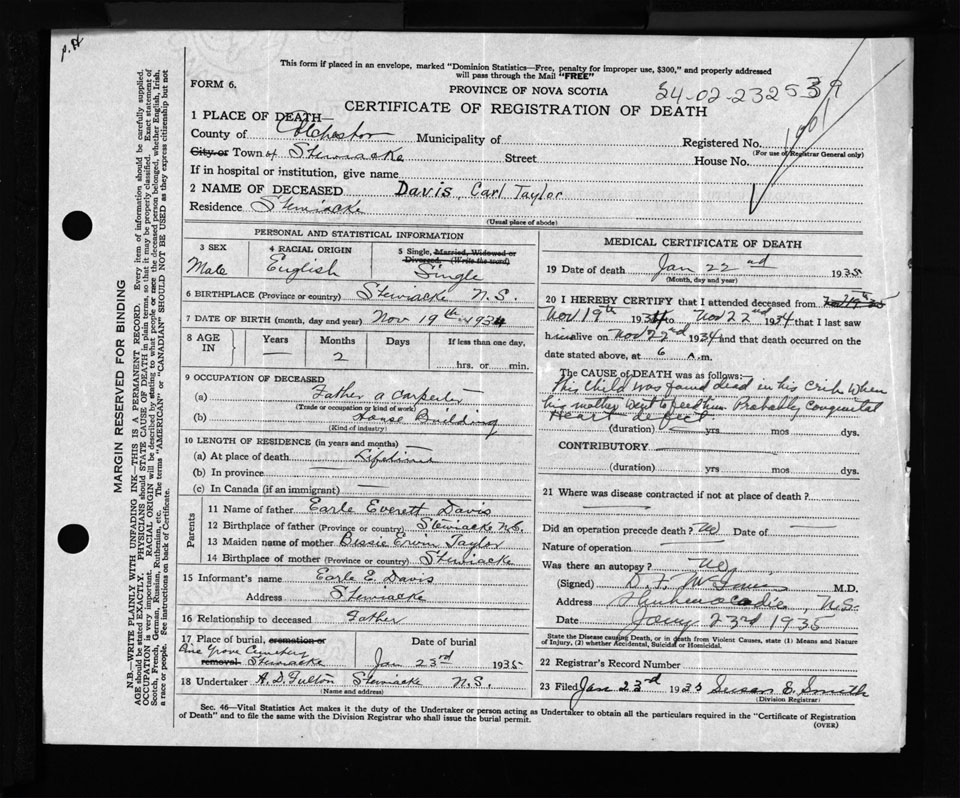 p.H
This form if placed in an envelope, marked "Dominion Statistics—Free, penalty for improper use, $300," and properly addressed
will pass through the Mail "FREE"
FORM 6.
PROVINCE OF NOVA SCOTIA
CERTIFICATE OF REGISTRATION OF DEATH
1 PLACE OF DEATH—
County of Colchester Municipality of
Registered No.
(For use of Registrar General only)
City or Town of Stewiacke Street
House No.
If in hospital or institution, give name
2 NAME OF DECEASED Davis, Carl Taylor
Residence Stewiacke
(Usual place of abode)
MARGIN RESERVED FOR BINDING
N.B.—WRITE PLAINLY WITH UNFADING INK—THIS IS A PERMANENT RECORD. Every item of information should be carefully supplied.
AGE should be stated EXACTLY. PHYSICIANS should STATE CAUSE OF DEATH in plain terms, so that it may be properly classified. Exact statement of
OCCUPATION is very important. RACIAL ORIGIN will be described by stating to what people or race the deceased person belonged, whether English, Irish,
Scotch, French, German, Russian, Ruthenian, etc. The terms "AMERICAN" or "CANADIAN" SHOULD NOT BE USED as they express citizenship but not
a race or people. See instructions on back of Certificate.
PERSONAL AND STATISTICAL INFORMATION
3 SEX
Male
4 RACIAL ORIGIN
English
5 Single, Married, Widowed or
Divorced, (Write the word)
Single
6 BIRTHPLACE (Province or country) Stewiacke N.S.
7 DATE OF BIRTH (month, day and year) Nov 19th 1934
8 AGE
IN
Years Months Days If less than one day,
2
hrs. or min.
9 OCCUPATION OF DECEASED
(a) Father a Carpenter
(Trade or occupation or kind of work)
(b) House Building
(Kind of industry)
10 LENGTH OF RESIDENCE (in years and months)
(a) At place of death Lifetime
(b) In province
(c) In Canada (if an immigrant)
Parents
11 Name of father Earle Everett Davis
12 Birthplace of father (Province or country) Stewiacke N.S.
13 Maiden name of mother Bessie Ervin Taylor
14 Birthplace of mother (Province or country) Stewiacke
15 Informant's name Earle E. Davis
Address Stewiacke
16 Relationship to deceased Father
17 Place of burial, cremation or
removal Pine Grove Cemetery
Stewiacke
Date of burial
Jan 23rd 1935
18 Undertaker A. D. Fulton Stewiacke N.S.
(Name and address)
MEDICAL CERTIFICATE OF DEATH
19 Date of death Jan 22nd 1935
(Month, day and year)
20 I HEREBY CERTIFY that I attended deceased from
Nov 19th 1934 to Nov 22nd 1934 that I last saw
him alive on Nov 22nd 1934 and that death occurred on the
date stated above, at 6 A.m.
The CAUSE of DEATH was as follows:
This child was found dead in his crib when
his mother went to feed him. Probably congenital
Heart defect
(duration) yrs mos dys.
CONTRIBUTORY
(duration) yrs mos dys.
21 Where was disease contracted if not at place of death?
Did an operation precede death? No Date of
Nature of operation
Was there an autopsy? No
(Signed) D. F. McInnis M.D.
Address Shubenacadie, N.S.
Date Jany 23rd 1935
State the Disease causing Death, or in death from Violent Causes, state (1) Means and Nature
of Injury, (2) whether Accidental, Suicidal or Homicidal.
22 Registrar's Record Number
23 Filed Jan 23rd 1935 Susan E. Smith
(Division Registrar)
Sec. 46—Vital Statistics Act makes it the duty of the Undertaker or person acting as Undertaker to obtain all the particulars required in the "Certificate of Registration
of Death" and to file the same with the Division Registrar who shall issue the burial permit.
(OVER)